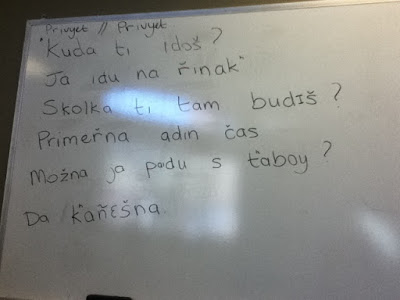 Privyet // Privyet
"Kuda ti idoš?
Ja idu na řinak"
Skolka ti tam budiš?
Primeřna adin čas
Možna ja podu s ťaboy?
Da ǩaňɛšna